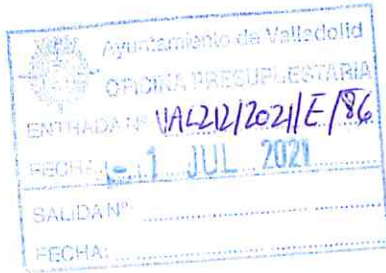 Ayuntamiento de Valladolid
OFICINA PRESUPUESTARIA
ENTRADA Nº VAL212/2021/E/86
FECHA: - 1 JUL 2021
SALIDA Nº:
FECHA: